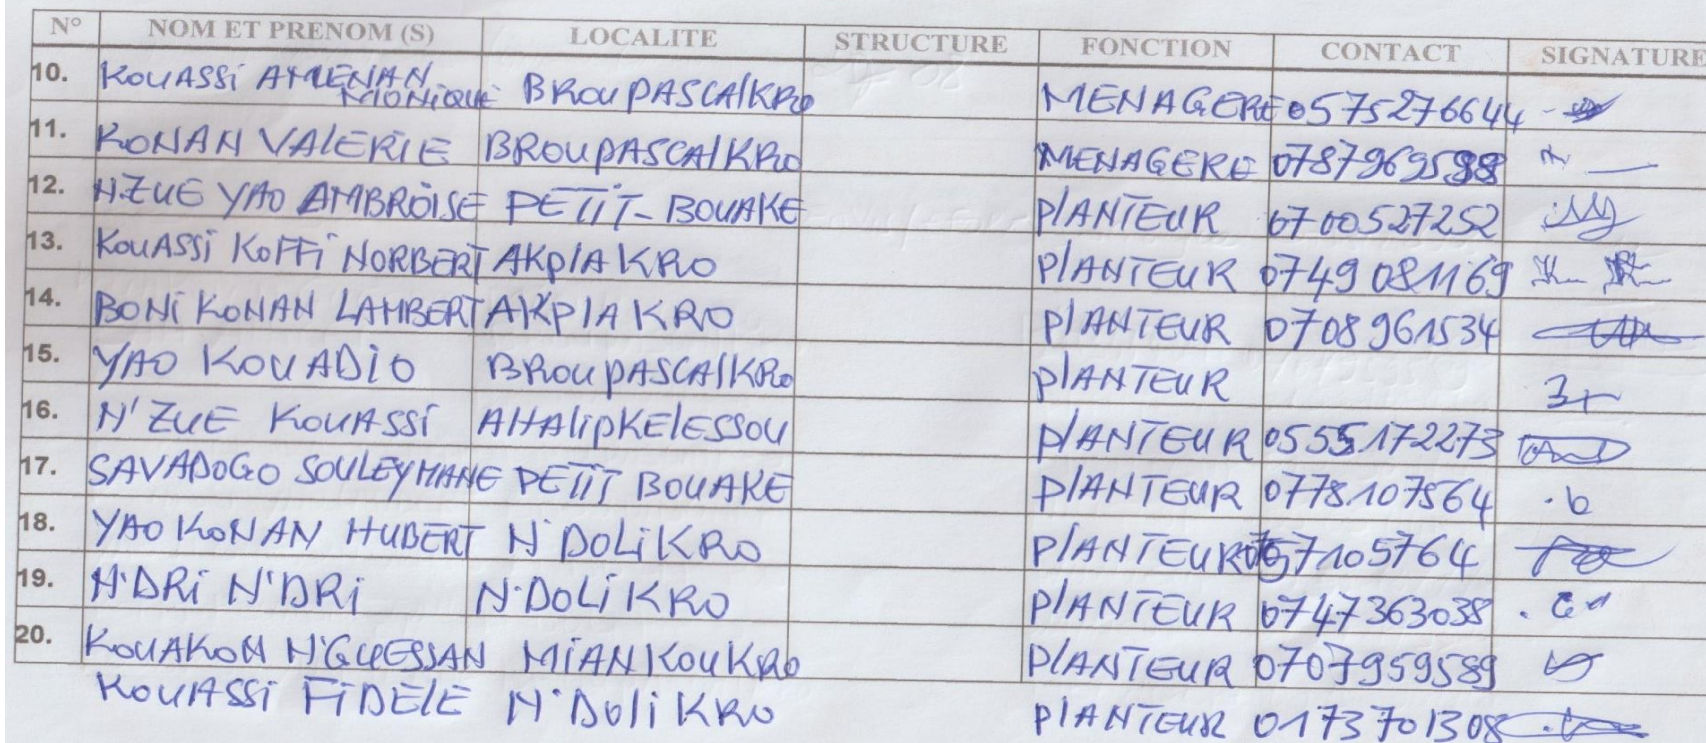 N° NOM ET PRENOM (S) LOCALITE STRUCTURE FONCTION CONTACT SIGNATURE
10. KOUASSI AMENAN MONIQUE BROUPASCALKRO MENAGERE 0575276644
11. KONAN VALERIE BROUPASCALKRO MENAGERE 0787969588
12. N'ZUE YAO AMBROISE PETIT-BOUAKE PLANTEUR 0700527252
13. KOUASSI KOFFI NORBERT AKPLAKRO PLANTEUR 0749081169
14. BONI KONAN LAMBERT AKPLAKRO PLANTEUR 0708961534
15. YAO KOUADIO BROUPASCALKRO PLANTEUR
16. N'ZUE KOUASSI PLANTEUR 0555172273
17. SAVADOGO SOULEYMANE PETIT BOUAKE PLANTEUR 0778107564
18. YAO KONAN HUBERT N'DOLIKRO PLANTEUR
19. N'DRI N'DRI N'DOLIKRO PLANTEUR 0747363038
20. KOUAKOU N'GUESSAN MIANKOUKRO PLANTEUR 0707959589
KOUASSI FIDELE N'DOLIKRO PLANTEUR 0173701308